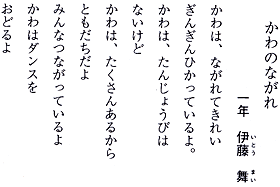 かわのながれ
一年 伊藤 舞
いとう まい
かわは、ながれてきれい
ぎんぎんひかっているよ。
かわは、たんじょうびは
ないけど
かわは、たくさんあるから
ともだちだよ
みんなつながっているよ
かわはダンスを
おどるよ